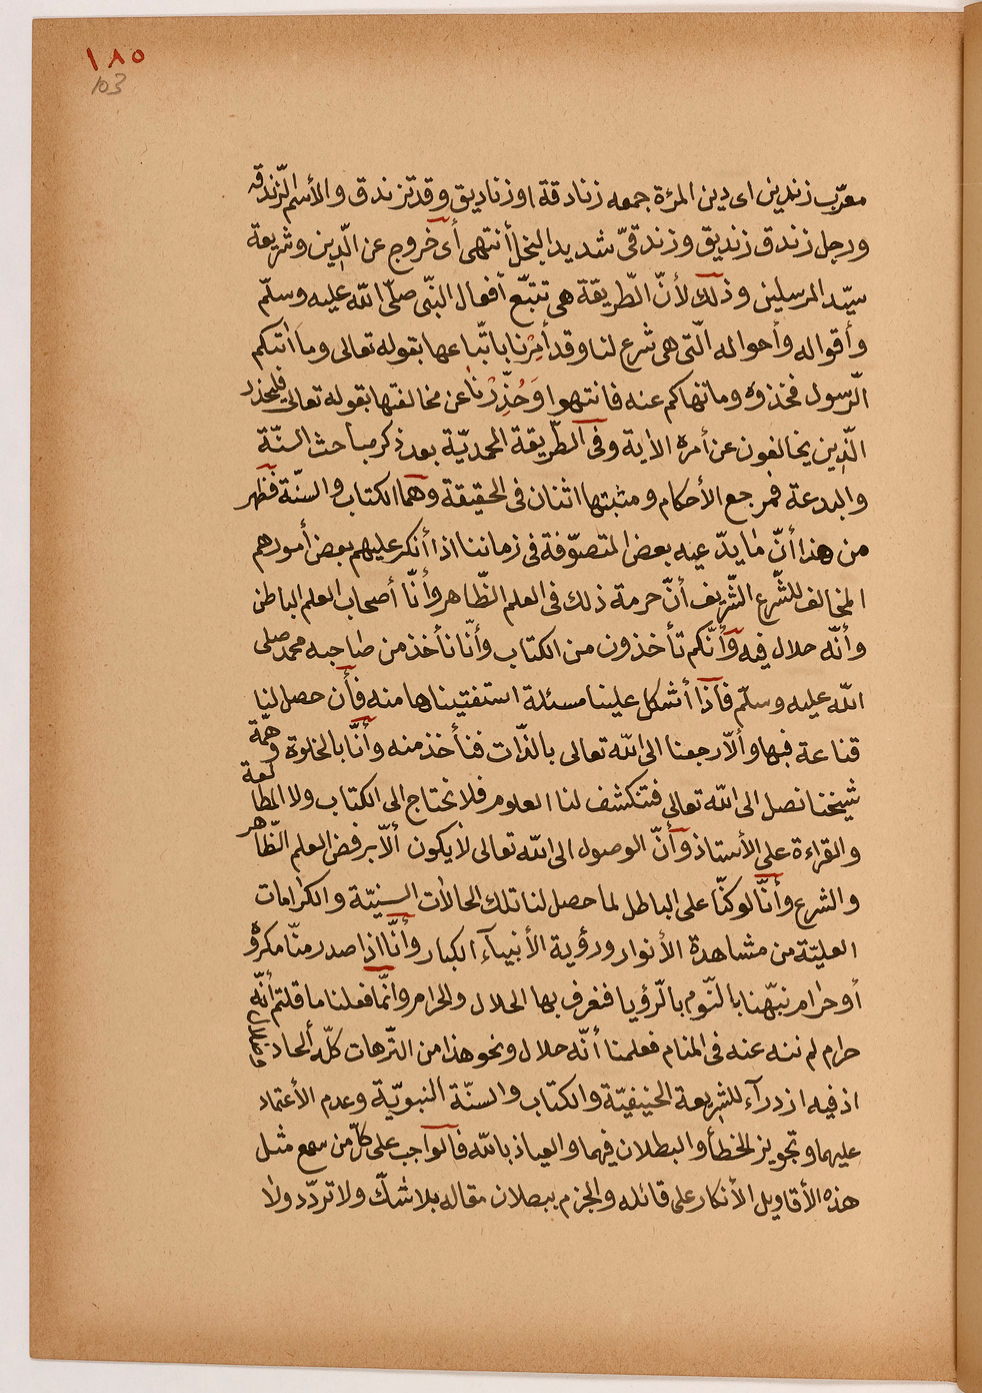 ١٨٥
103
معرّب زندين اى دين المرٔة جمعه زنادقة اوزناديق وقدتزندق والأسم الزّندقه
ورجل زندق زنديق وزندقىّ شديد البخل أنتهى أى خروج عن الّدين وشريعة
سيّد المرسلين وذلك لأنّ الطّريقة هى تتبّع أفعال النبّى صلّى اللّه عليه وسلّم
وأقواله وأحواله الّتى هى شرع لنا وقد أمِرْنا باتّباعها بقوله تعالى وما اٰتٰكم
الرّسول فخذوه ومانهاكم عنه فانتهوا وَحُذِّرْنَا عن مخالفتها بقوله تعالى فليحذر
الّذين يخالفون عن أمره الأية وفى الطّريقة المحمديّة بعد ذكر مباحث السنّة
والبدعة فمرجع الأحكام ومثبتها اثنان فى الحقيقة وهما الكتاب والسنّة فظهر
من هذا أنّ ما يدّعيه بعض المتصوّفة فى زماننا اذا أنكر عليهم بعض أمورهم
المخالف للشّرع الشّريف أنّ حرمة ذلك فى العلم الظّاهر وأنّا أصحاب العلم الباطن
وأنّه حلال فيه وأنّكم تأخذون من الكتاب وأنّا نأخذ من صاحبه محمد صلى
اللّه عليه وسلّم فأذا أشكل علينا مسئلة استفتيناها منه فأن حصل لنا
قناعة فبها وألاّ رجعنا الى اللّه تعالى بالذّات فنأخذ منه وأنّا بالخلوة وهمّة
شيخنا نصل الى اللّه تعالى فتنكشف لنا العلوم فلا نحتاج الى الكتاب ولا المطالعة
والقراءة على الأستاذ وأنّ الوصول الى اللّه تعالى لايكون ألاّ برفض العلم الظّاهر
والشرع وأنّا لوكنّا على الباطل لما حصل لنا تلك الحالات السنيّة والكرامات
العليّة من مشاهدة الأنوار ورؤية الأنبيآء الكبار وأنّا اذا صدر منّا مكروه
أوحرام نبّهنا بالنّوم بالرّؤيا فنعرف بها الحلال والحرام وانّما فعلنا ما قلتم أنّه
حرام لم ننه عنه فى المنام فعلمنا أنّه حلال ونحو هذا من التّرهات كلّه ألحاد وضلال
اذ فيه ازدرآء للشريعة الحنيفيّة والكتاب والسنّة النبويّة وعدم الأعتماد
عليهما وتجويز الخطأ والبطلان فيهما والعياذ باللّه فالواجب على كلّ من سمع مثل
هذه الأقاويل الأنكار على قائله والجزم ببطلان مقاله بلا شكّ ولا تردّد ولا